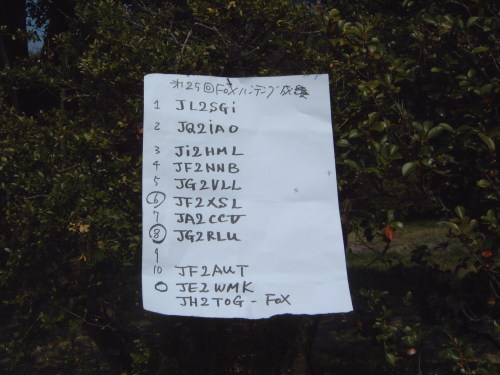 第25回FOXハンテング成績
1 JL2SGi
2 JQ2iAO
3 Ji2HML
4 JF2NNB
5 JG2VLL
⑥ JF2XSL
7 JA2CCV
⑧ JG2RLU
9
10 JF2AUT
O JE2WMK
JH2TOG - FOX